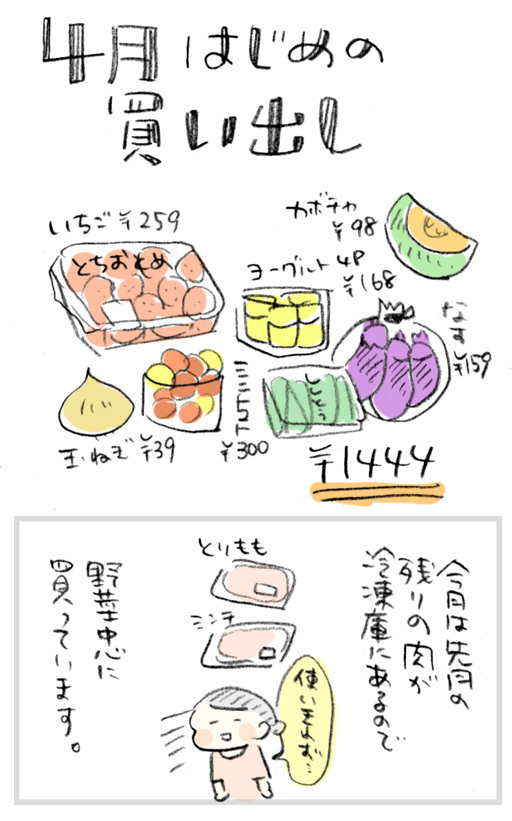 4月はじめの
買い出し
いちご ¥259
とちおとめ
カボチャ
¥98
ヨーグルト4P
¥168
なす
¥159
玉ねぎ ¥39
ミニトマト
¥300
ししとう
¥1444
今月は先月の
残りの肉が
冷凍庫にあるので
とりもも
ミンチ
使いきれず…
野菜中心に
買っています。